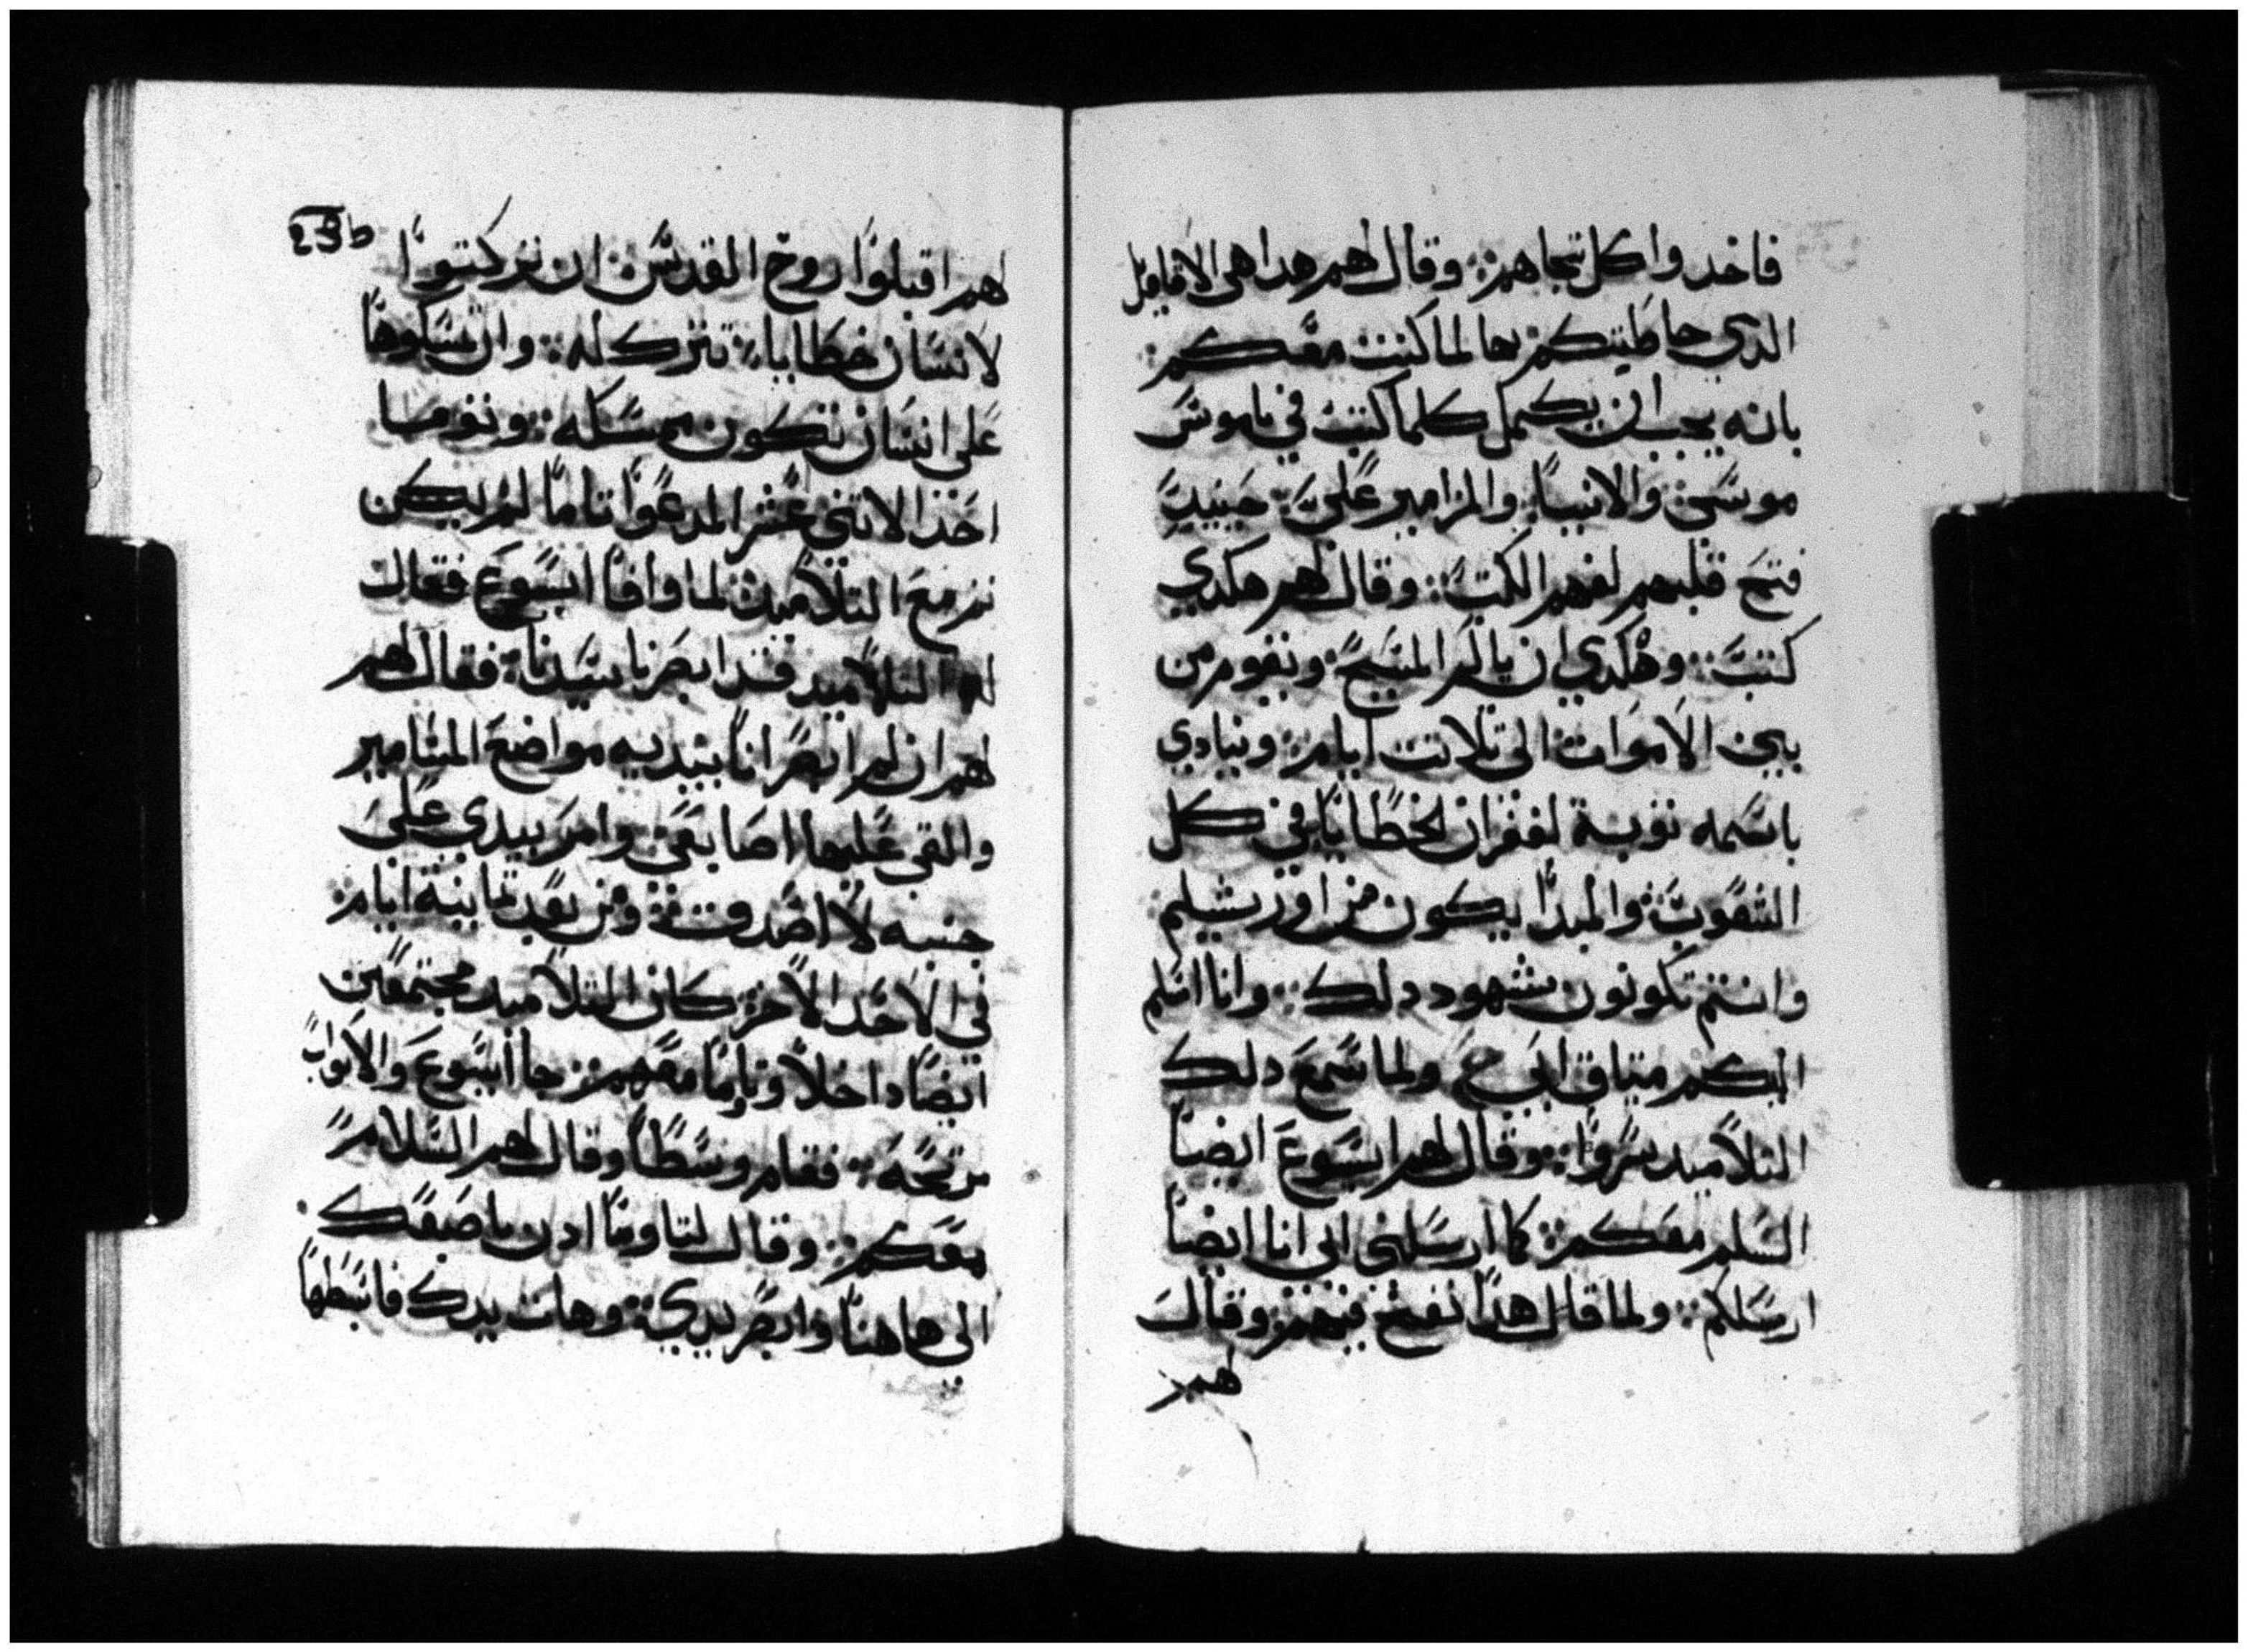 فاخد واكل تجاههم ؞ وقال لهم هدا هى الاقاويل
الدي خاطبتكم بها لما كنت معكم ؞
بانه يجب ان يكمل كلما كتب في ناموس
موسى ؞ والانبيا ؞ والمزامير علي ؞ حينيد
فتح قلبهم لفهم الكتب ؞ وقال لهم هكدي
كتب ؞ وهكدي ان يالم المسيح ؞ ويقوم من
بين الاموات ؞ الى تلاتت ايام ؞ وينادي
باسمه توبة لغفران الخطايا في كل
الشعوب ؞ والمبدا يكون من اورشيلم
وانتم تكونون شهود دلك ؞ وانا اسلم
اليكم ميتاق ابي ؞ ولما سمع دلك
التلاميد سروا ؞ وقال لهم ايسوع ايضا
السلم معكم ؞ كما ارسلني ابي انا ايضا
ارسلكم ؞ ولما قال هدا نفخ فيهم وقال
لهم
23b
لهم اقبلوا روح القدس ؞ ان تركتوا
لانسان خطايا ؞ تترك له ؞ وان تمسكوها
على انسان تكون ممسكه ؞ وتوما
احد الاتني عشر المدعوا تاما لم يكن
تم مع التلاميد لما وافا ايسوع فقال
له التلاميد قد ابصرنا سيدنا ؞ فقال لهم
لهم ان لم ابصر انا بيديه مواضع المسامير
والقي عليها اصابعي ؞ وامر بيدي على
جنبه لا اصدق ؞ ومن بعد تمانية ايام ؞
في الاحد الاخر كان التلاميد مجتمعين
ايضا داخلا وتاوما معهم ؞ جا ايسوع والابواب
مرتجه ؞ فقام وسطا وقال لهم السلام
معكم ؞ وقال لتاوما ادن باصبعك
الى هاهنا وابصر يدي ؞ وهات يدك فابسطها